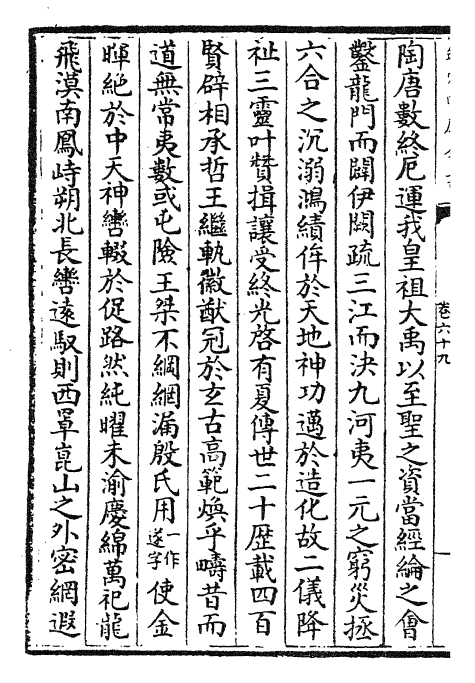 陶唐數終厄運我皇祖大禹以至聖之資當經綸之會
鑿龍門而闢伊闕疏三江而決九河夷一元之窮災拯
六合之沉溺鴻績侔於天地神功邁於造化故二儀降
祉三靈叶贊揖讓受終光啓有夏傳世二十歷載四百
賢辟相承哲王繼軌徽猷冠於玄古高範煥乎疇昔而
道無常夷數或屯險王桀不綱網漏殷氏用一作遂字使金
暉絶於中天神轡輟於促路然純曜未渝慶綿萬祀龍
飛漠南鳳峙朔北長轡遠馭則西罩崑山之外密網遐
卷六十九